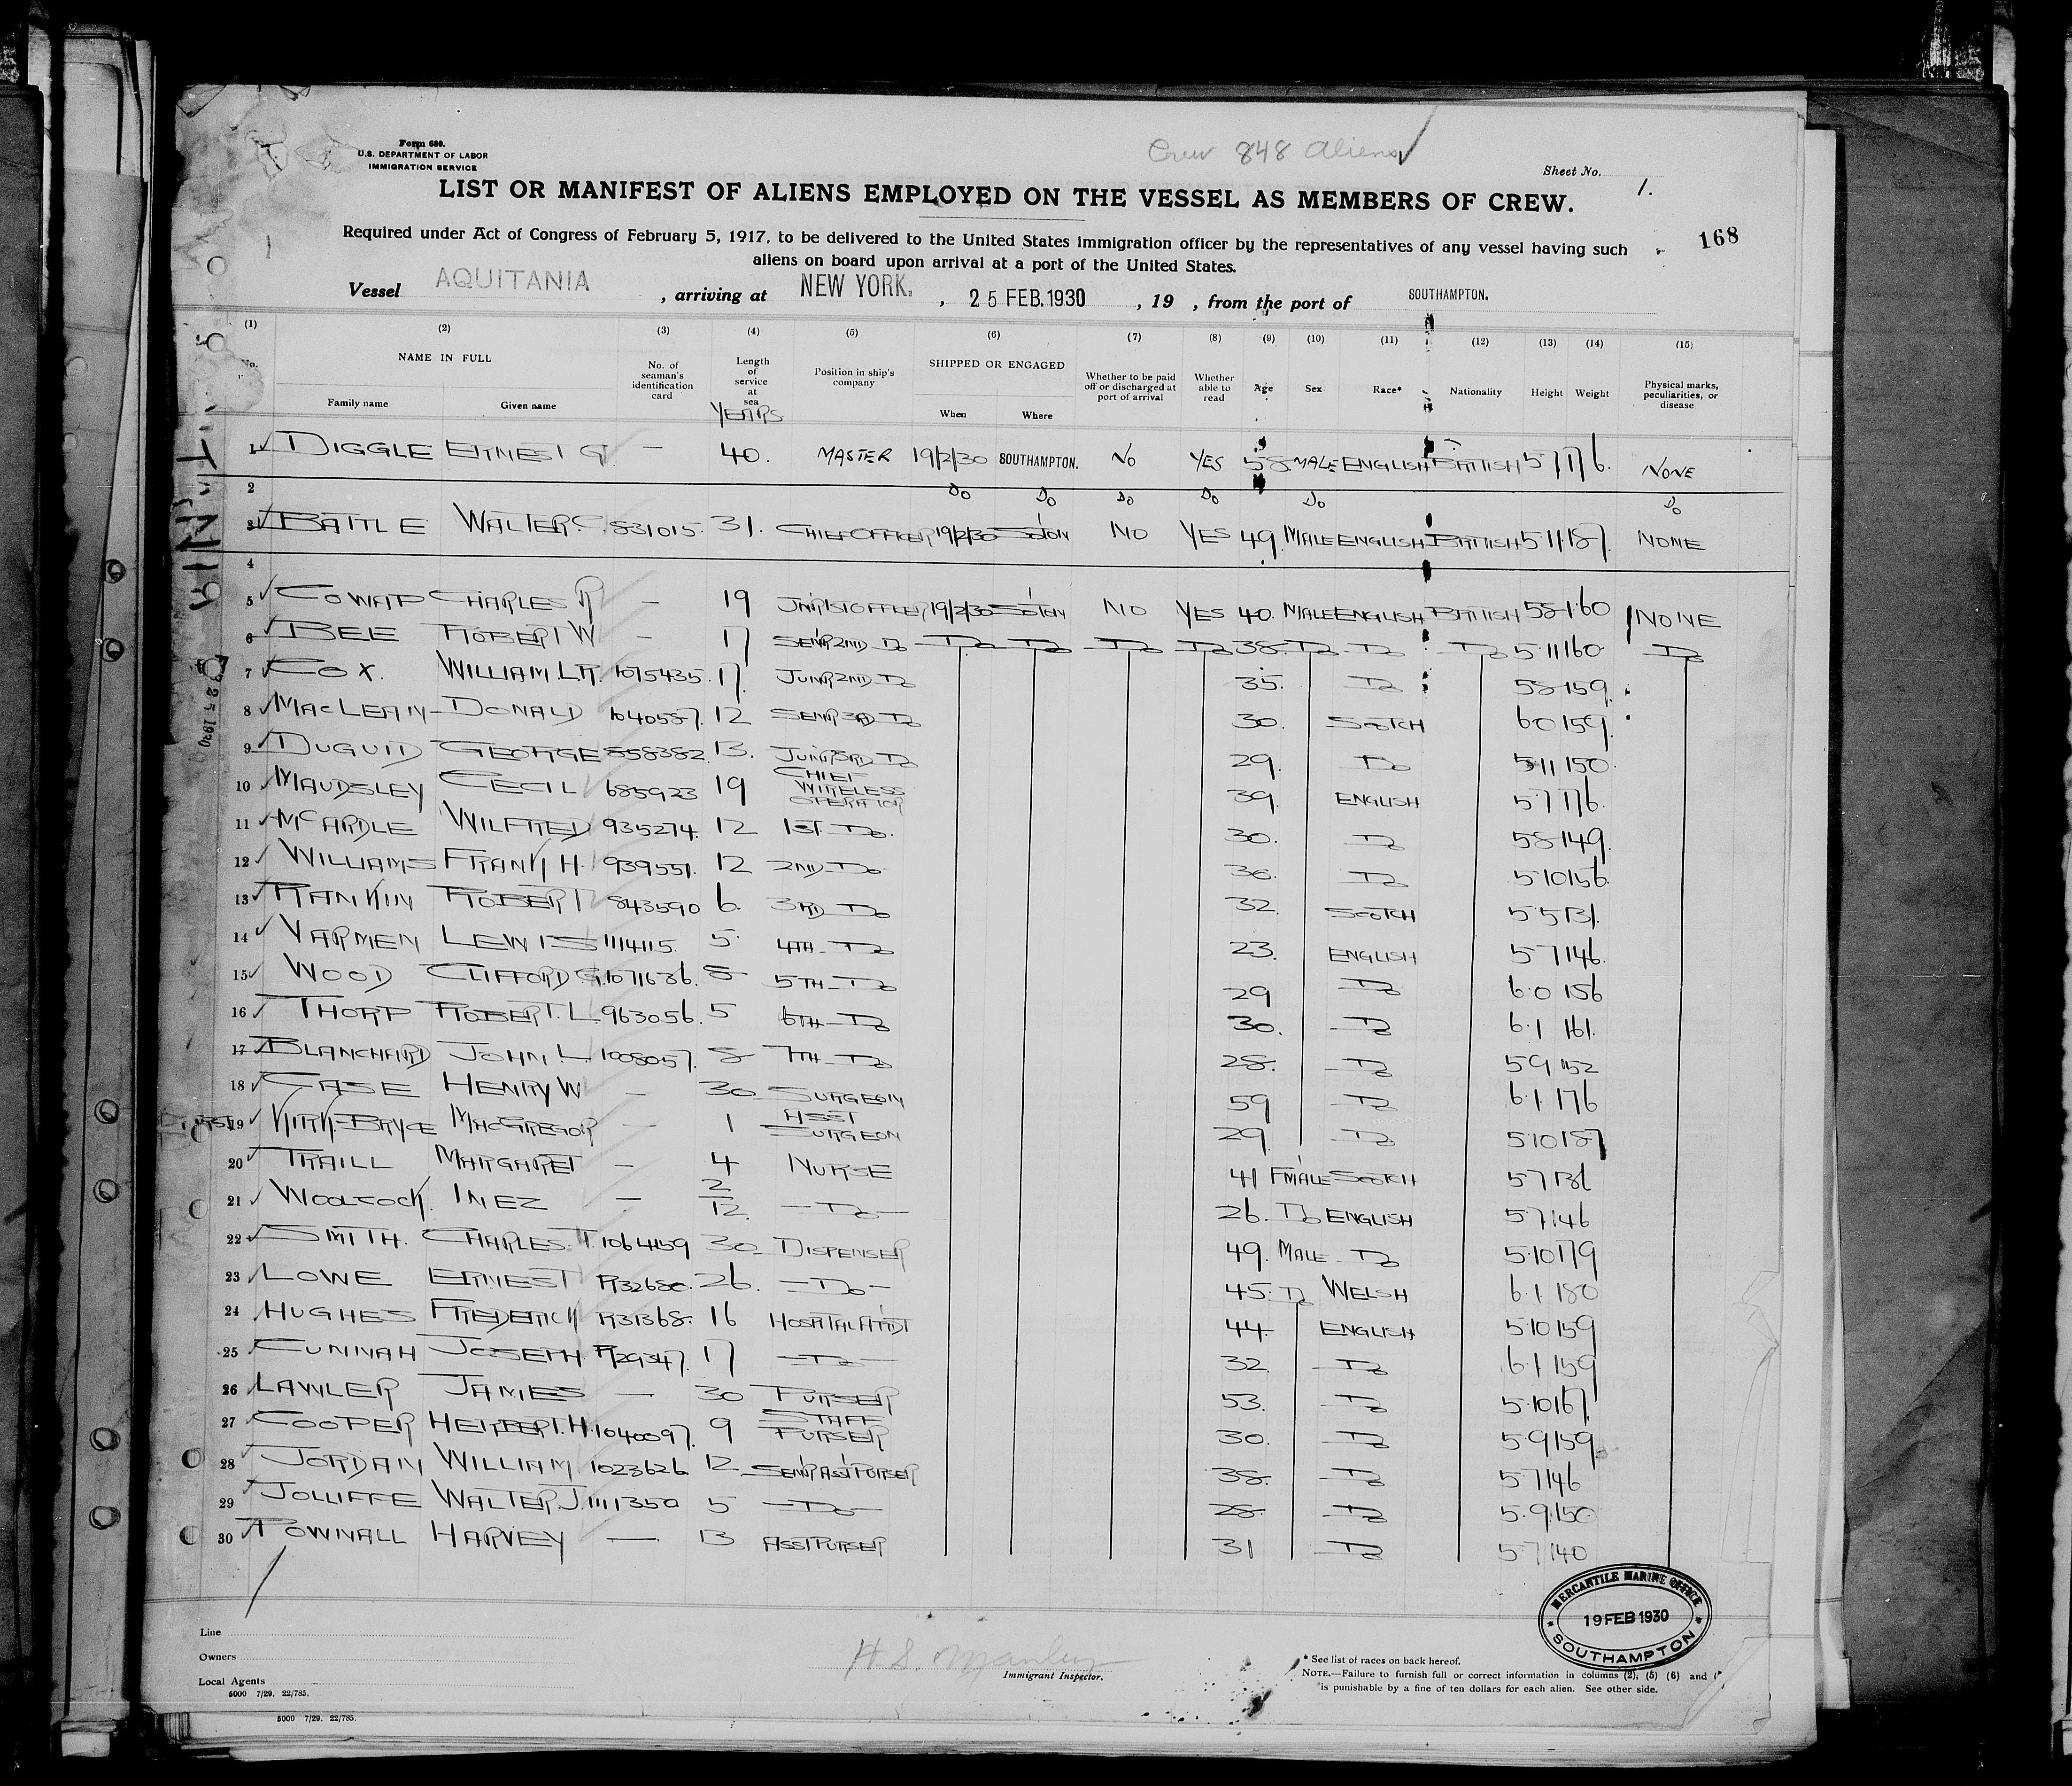 Form 680.
U.S. DEPARTMENT OF LABOR
IMMIGRATION SERVICE
Crew 848 Aliens
Sheet No. 1.
LIST OR MANIFEST OF ALIENS EMPLOYED ON THE VESSEL AS MEMBERS OF CREW.
168
Required under Act of Congress of February 5, 1917, to be delivered to the United States immigration officer by the representatives of any vessel having such
aliens on board upon arrival at a port of the United States.
Vessel AQUITANIA , arriving at NEW YORK. , 25 FEB.1930 , 19 , from the port of SOUTHAMPTON.
(1) (2) (3) (4) (5) (6) (7) (8) (9) (10) (11) (12) (13) (14) (15)
No. NAME IN FULL Family name Given name No. of seaman's identification card Length of service at sea YEARS Position in ship's company SHIPPED OR ENGAGED When Where Whether to be paid off or discharged at port of arrival Whether able to read Age Sex Race* Nationality Height Weight Physical marks, peculiarities, or disease
1 DIGGLE ERNEST G — 40. MASTER 19/2/30 SOUTHAMPTON. NO YES 58 MALE ENGLISH BRITISH 5 7 176. NONE
2 Do Do Do Do Do Do
3 BATTLE WALTER C. 831015. 31. CHIEF OFFICER 19/2/30 SO'TON NO YES 49. MALE ENGLISH BRITISH 5 11 187. NONE
4
5 COWAP CHARLES R — 19 JNR 1ST OFFICER 19/2/30 SO'TON NO YES 40. MALE ENGLISH BRITISH 5 8 160 NONE
6 BEE ROBERT W — 17 SENR 2ND Do Do Do Do Do 38 Do Do Do 5 11 160 Do
7 COX. WILLIAM L.R. 1075435. 17. JUNR 2ND Do 35. Do 5 8 159.
8 MACLEAN DONALD 1040587. 12 SENR 3RD Do 30. SCOTCH 6 0 159.
9 DUGUID GEORGE 858382. 13. JUNR 3RD Do 29. Do 5 11 150.
10 MAUDSLEY CECIL 685923 19 CHIEF WIRELESS OPERATOR 39. ENGLISH 5 7 176.
11 McARDLE WILFRED 935274. 12 1ST. Do. 30. Do 5 8 149.
12 WILLIAMS FRANK H. 939551. 12 2ND Do Do 5 10 156.
13 RANKIN ROBERT 843590 6. 3RD Do 32. SCOTCH 5 5 131.
14 YARMEN LEWIS 1114115. 5. 4TH Do 23. ENGLISH 5 7 146.
15 WOOD CLIFFORD G. 1071686. 8 5TH Do 29 Do 6.0 156
16 THORP ROBERT. L 963056. 5 6TH Do 30. Do 6.1 161.
17 BLANCHARD JOHN L 1008057. 8 7TH Do 28. Do 5 9 152
18 CASE HENRY W — 30 SURGEON 59 Do 6.1 176
19 KIRK-BRYCE MACGREGOR — 1 ASST SURGEON 29. Do 5 10 187
20 TRAILL MARGARET — 4 NURSE 41 F'MALE SCOTCH 5 7 136
21 WOOLCOCK. INEZ — 2/12. — Do — 26. Do ENGLISH 5 7 146
22 SMITH. CHARLES. T. 1064159 30 DISPENSER 49. MALE Do 5.10 179
23 LOWE ERNEST R32680. 26. — Do — 45. Do WELSH 6.1 180
24 HUGHES FREDERICK R31368. 16 HOSPITAL ATT'DT 44. ENGLISH 5 10 159
25 CUNNAH JOSEPH R29347. 17 — Do — 32. Do 6.1 159
26 LAWLER JAMES — 30 PURSER 53. Do 5.10 167.
27 COOPER HERBERT. H. 1040097. 9 STAFF PURSER 30. Do 5.9 159
28 JORDAN WILLIAM 1023626 12 SENR ASST PURSER 38. Do 5 7 146
29 JOLLIFFE WALTER J. 1111350 5 — Do — 28. Do 5.9 150
30 POWNALL HARVEY — 13 ASST PURSER 31 Do 5 7 140
MERCANTILE MARINE OFFICE
19 FEB 1930
SOUTHAMPTON
Line
Owners
Local Agents
5000 7/29. 22/785.
H. S. Manley
Immigrant Inspector.
* See list of races on back hereof.
NOTE.—Failure to furnish full or correct information in columns (2), (5) (6) and
is punishable by a fine of ten dollars for each alien. See other side.
5000 7/29. 22/785.